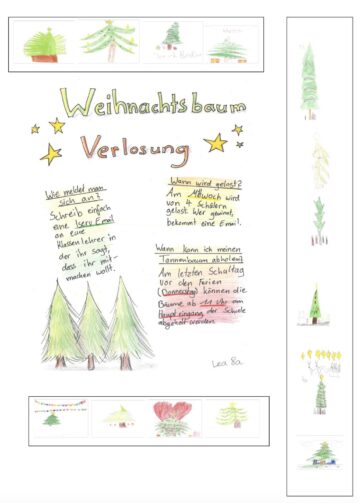 Weihnachtsbaum
Verlosung
Wie meldet man
sich an?
Schreib einfach
eine Iserv Email
an eure
Klassenlehrer in
der ihr sagt,
dass ihr mit-
machen wollt.
Wann wird gelost?
Am Mittwoch wird
von 4 Schülern
gelost. Wer gewinnt,
bekommt eine Email.
Wann kann ich meinen
Tannenbaum abholen?
Am letzten Schultag
vor den Ferien
(Donnerstag) können die
Bäume ab 11 Uhr am
Haupteingang der Schule
abgeholt werden.
Lea 8a